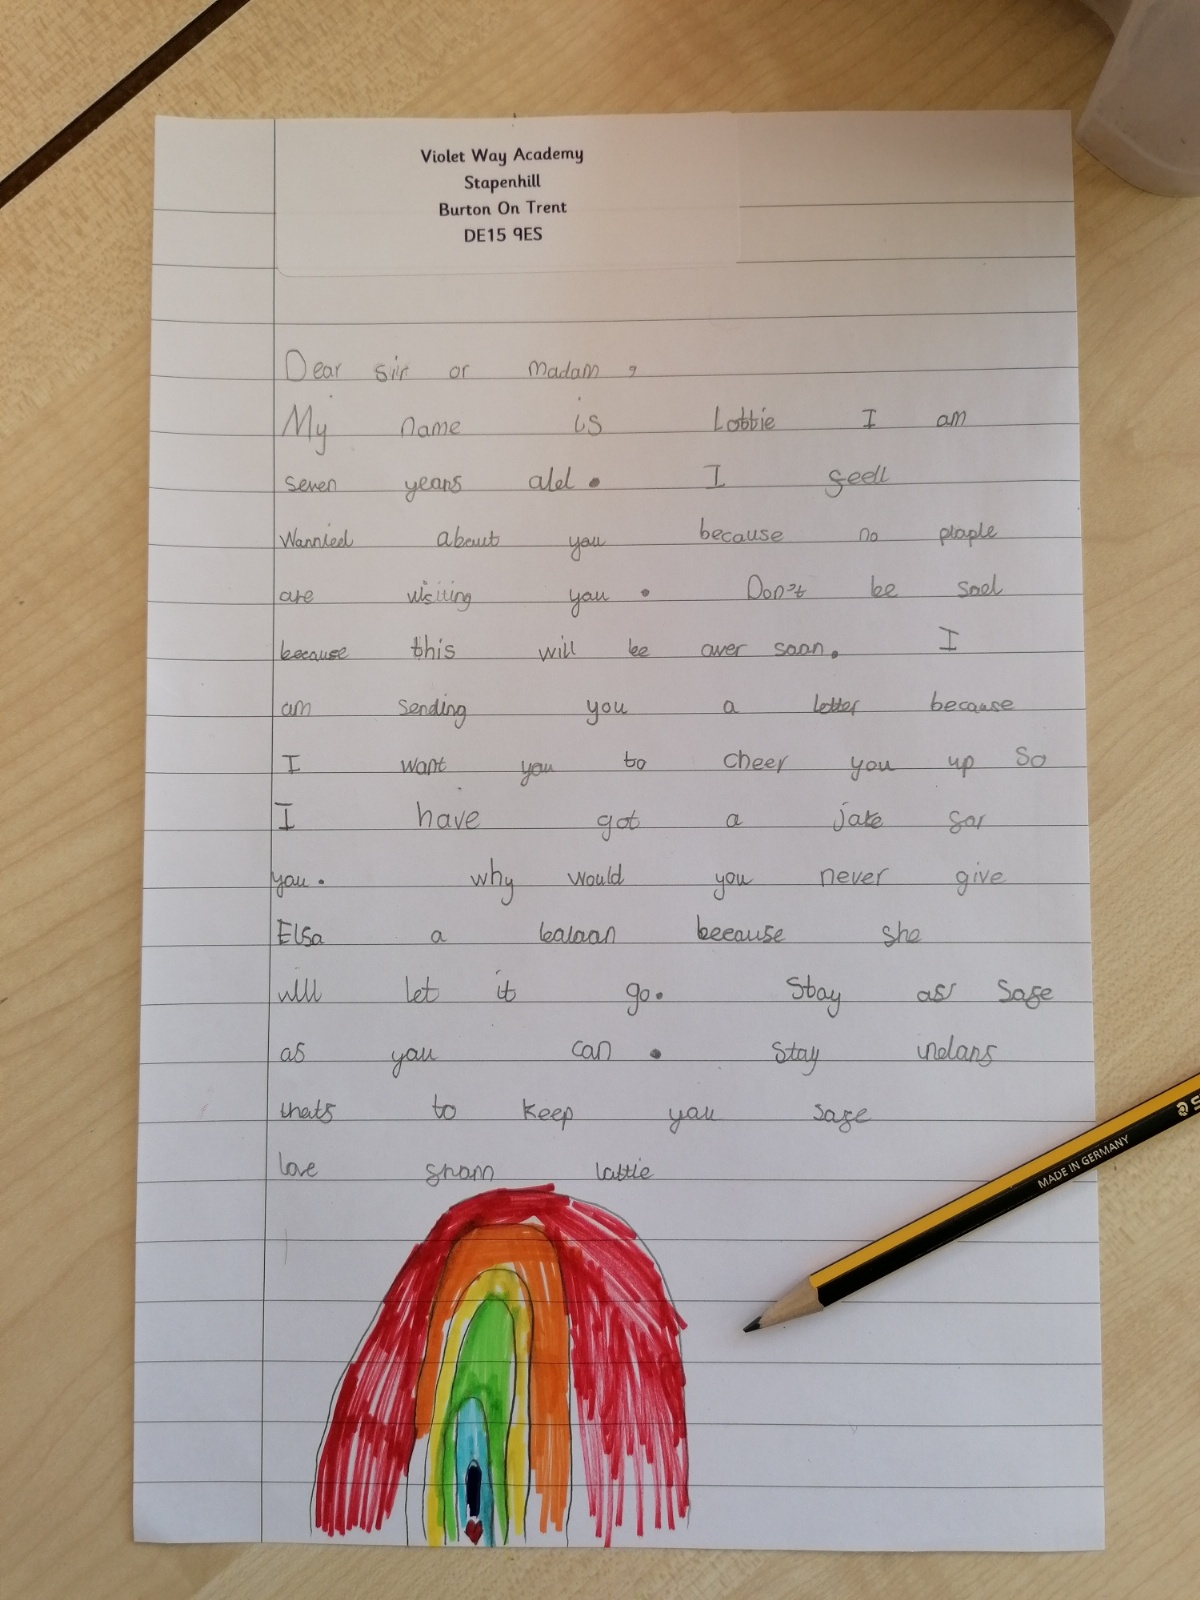 Violet Way Academy
Stapenhill
Burton On Trent
DE15 9ES
Dear sir or madam,
My name is Lottie I am
seven years old. I feell
worried about you because no plople
are visiiing you. Don't be sad
because this will be over soon. I
am sending you a letter because
I want you to cheer you up so
I have got a joke for
you. why would you never give
Elsa a baloon because she
will let it go. Stay as safe
as you can. Stay indors
thats to keep you safe
love from lottie
MADE IN GERMANY